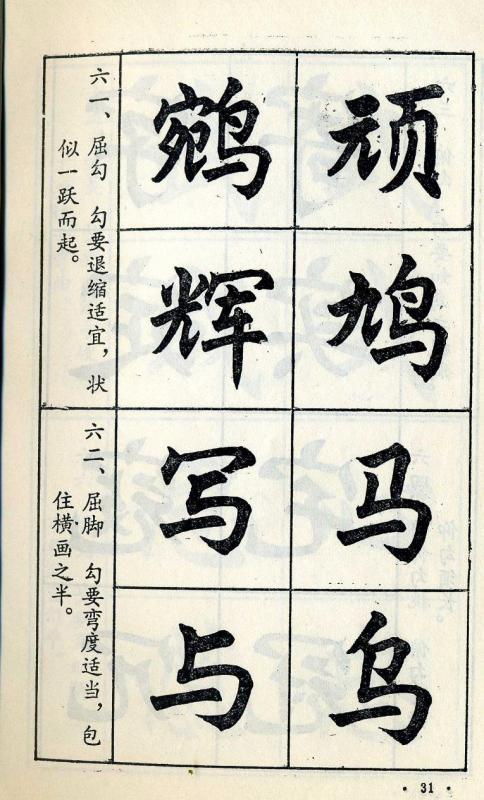 顽鸠
鹓辉
六一、屈勾 勾要退缩适宜，状
似一跃而起。
马乌
写与
六二、屈脚 勾要弯度适当，包
住横画之半。
·31·